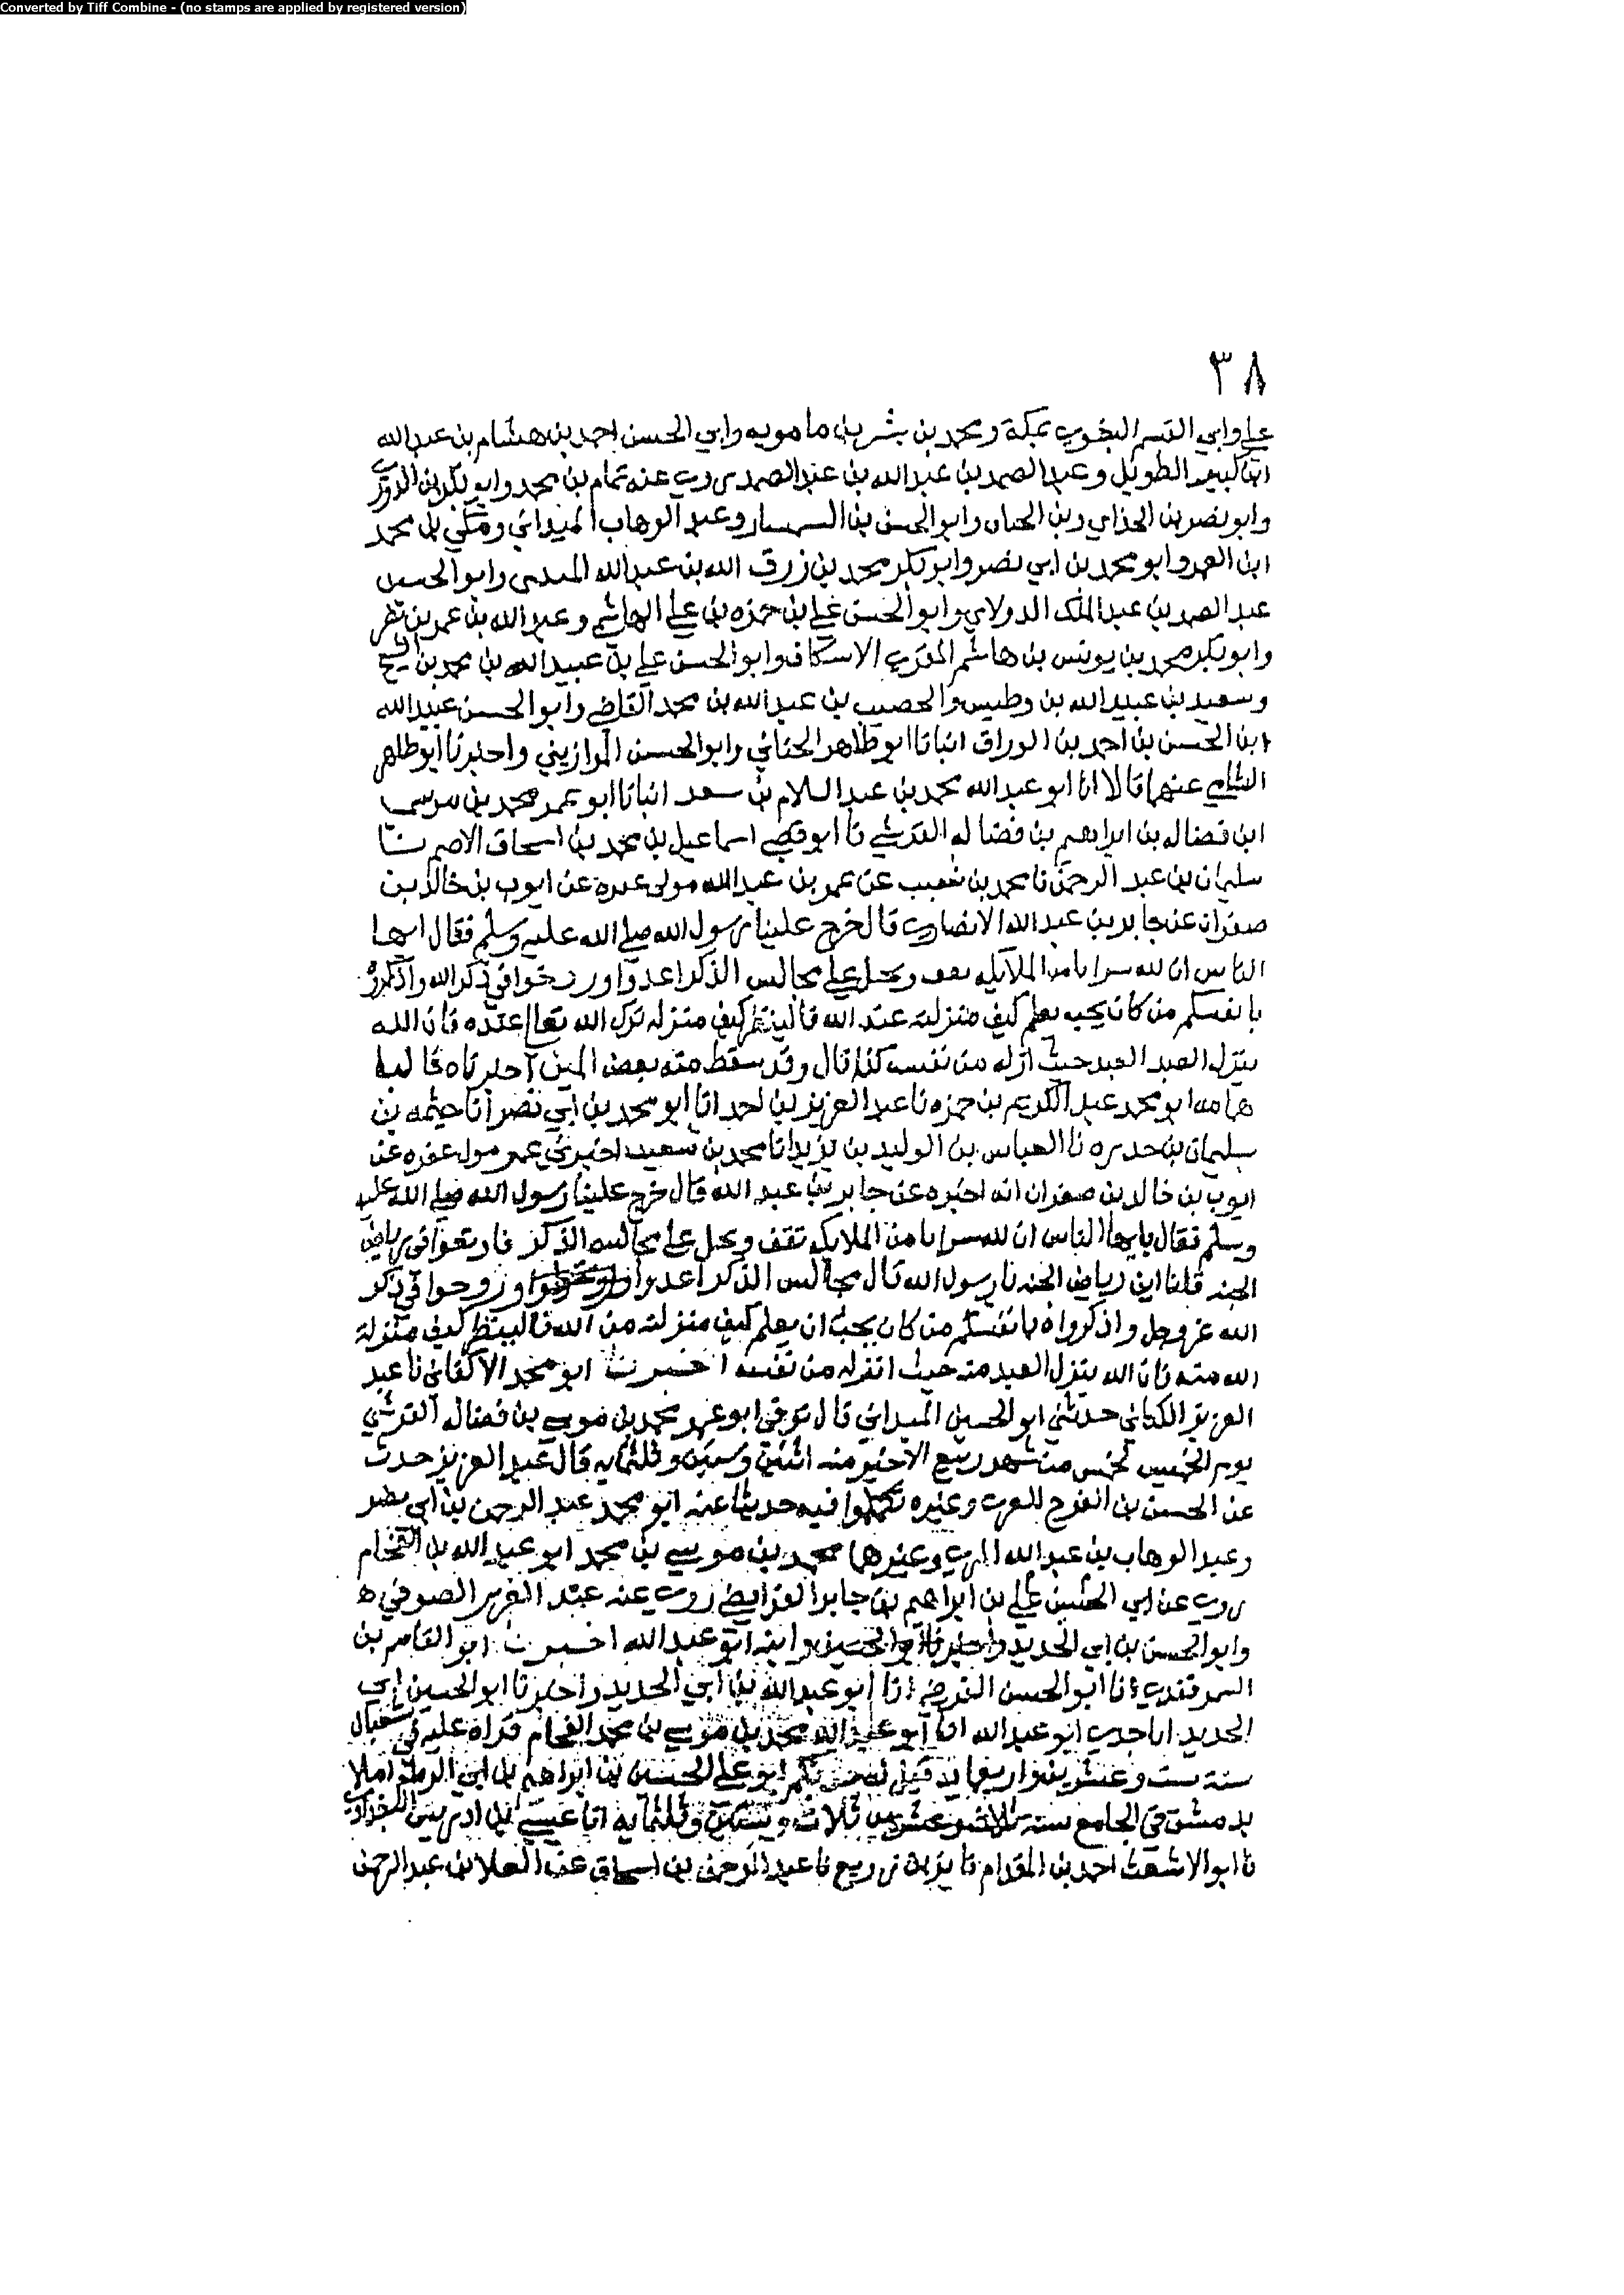 Converted by Tiff Combine - (no stamps are applied by registered version)
٣٨
علي وابي القسم البغوي بمكة ومحمد بن بشر بن مامويه وابي الحسن احمد بن هشام بن عبد الله
ابن كبير الطويل وعبد الصمد بن عبد الله بن عبد الصمد روي عنه تمام بن محمد وابو بكر بن الدوري
وابو نصر بن الجذاي وبن الجبان وابو الحسن بن السمسار وعبد الوهاب الميداني ومكي بن محمد
ابن الغمر وابو محمد بن ابي نصر وابو بكر محمد بن زرق الله بن عبد الله وابو الحسين
عبد الصمد بن عبد الملك الدولاي وابو الحسن علي بن حمزه بن علي الهاشمي وعبد الله بن عمر بن نصر
وابو بكر محمد بن يونس بن هاشم المقري الاسكاف وابو الحسن علي بن عبيد الله بن محمد بن الشيخ
وسعيد بن عبيد الله بن وطيس والحصيب بن عبد الله بن محمد القاضي وابو الحسن عبيد الله
ابن الحسن بن احمد بن الوراق انبانا ابو طاهر الحنائي وابو الحسن الموازيني واخبرنا ابو طاهر
عنهما قالا انا ابو عبد الله محمد بن عبد السلام بن سعد انبانا ابو عمر محمد بن موسى
ابن فضاله بن ابراهيم بن فضاله القرشي نا ابو قصي اسماعيل بن محمد بن اسحاق الاصم نا
سليمان بن عبد الرحمن نا محمد بن شعيب عن عمر بن عبد الله مولى عفره عن ايوب بن خالد بن
صفوان عن جابر بن عبد الله الانصاري قال خرج علينا رسول الله صلي الله عليه وسلم فقال ايها
الناس ان لله سرايا من الملايكه تقف وتحل علي مجالس الذكر اغدوا وروحوا في ذكر الله واذكروه
بانفسكم من كان يحب يعلم كيف منزلته عند الله فالينظر كيف منزله ترك الله تعالي عنده فان الله
ينزل العبد العبد حيث انزله من نفسه كذا قال وقد سقط منه بعض المتن اخبرناه
ابو محمد عبد الكريم بن حمزه نا عبد العزيز بن احمد انا ابو محمد بن ابي نصر انا خيثمه بن
سليمان بن حدره نا العباس بن الوليد بن يزيد انا محمد بن شعيب اخبرني عمر مولى عفره عن
ايوب بن خالد بن صفوان انه اخبره عن جابر بن عبد الله قال خرج علينا رسول الله صلي الله عليه
وسلم فقال يايها الناس ان لله سرايا من الملايكه تقف وتحل علي مجالس الذكر فارتعوا في رياض
الجنه قلنا اين رياض الجنه يا رسول الله قال مجالس الذكر اغدوا وروحوا في ذكر
الله عز وجل واذكرواه بانفسكم من كان يحب ان يعلم كيف منزلته من الله فالينظر كيف منزلة
الله منه فان الله ينزل العبد منه حيث انزله من نفسه اخبرنا ابو محمد الاكفاني نا عبد
العزيز الكتاني حدثني ابو الحسين الميداني قال توفي ابو عمر محمد بن موسي بن فضاله القرشي
يوم الخميس لخمس من شهر ربيع الاخير سنه اثنتين وستين وثلثمايه قال عبد العزيز حدث
عن الحسن بن الفرج الغزي وغيره تكلموا فيه حدثنا عنه ابو محمد عبد الرحمن بن ابي نصر
وعبد الوهاب بن عبد الله المري وغيرهما محمد بن موسي بن محمد ابو عبد الله بن الفحام
روي عن ابي الحسن علي بن ابراهيم بن جابر الفرايضي روي عنه عبد العزيز الصوفي
وابو الحسن بن ابي الحديد وابنه ابو عبد الله اخبرنا ابو القاسم بن
السمرقندي انا ابو الحسن الفرضي انا ابو عبد الله بن ابي الحديد واخبرنا ابو الحسين ابي
الحديد انا جدي ابو عبد الله انا ابو عبد الله محمد بن موسي بن محمد الفحام قراه عليه في شعبان
سنة ست وعشرين واربعمايه قيل ابو علي الحسن بن ابراهيم بن ابي املا
بدمشق في الجامع سنة ثلاث وثلثمايه انا عيسي بن ادريس البغدادي
نا ابو الاشعث احمد بن المقدام نا يزيد بن زريع نا عبد الرحمن بن اسحاق عن العلا بن عبد الرحمن